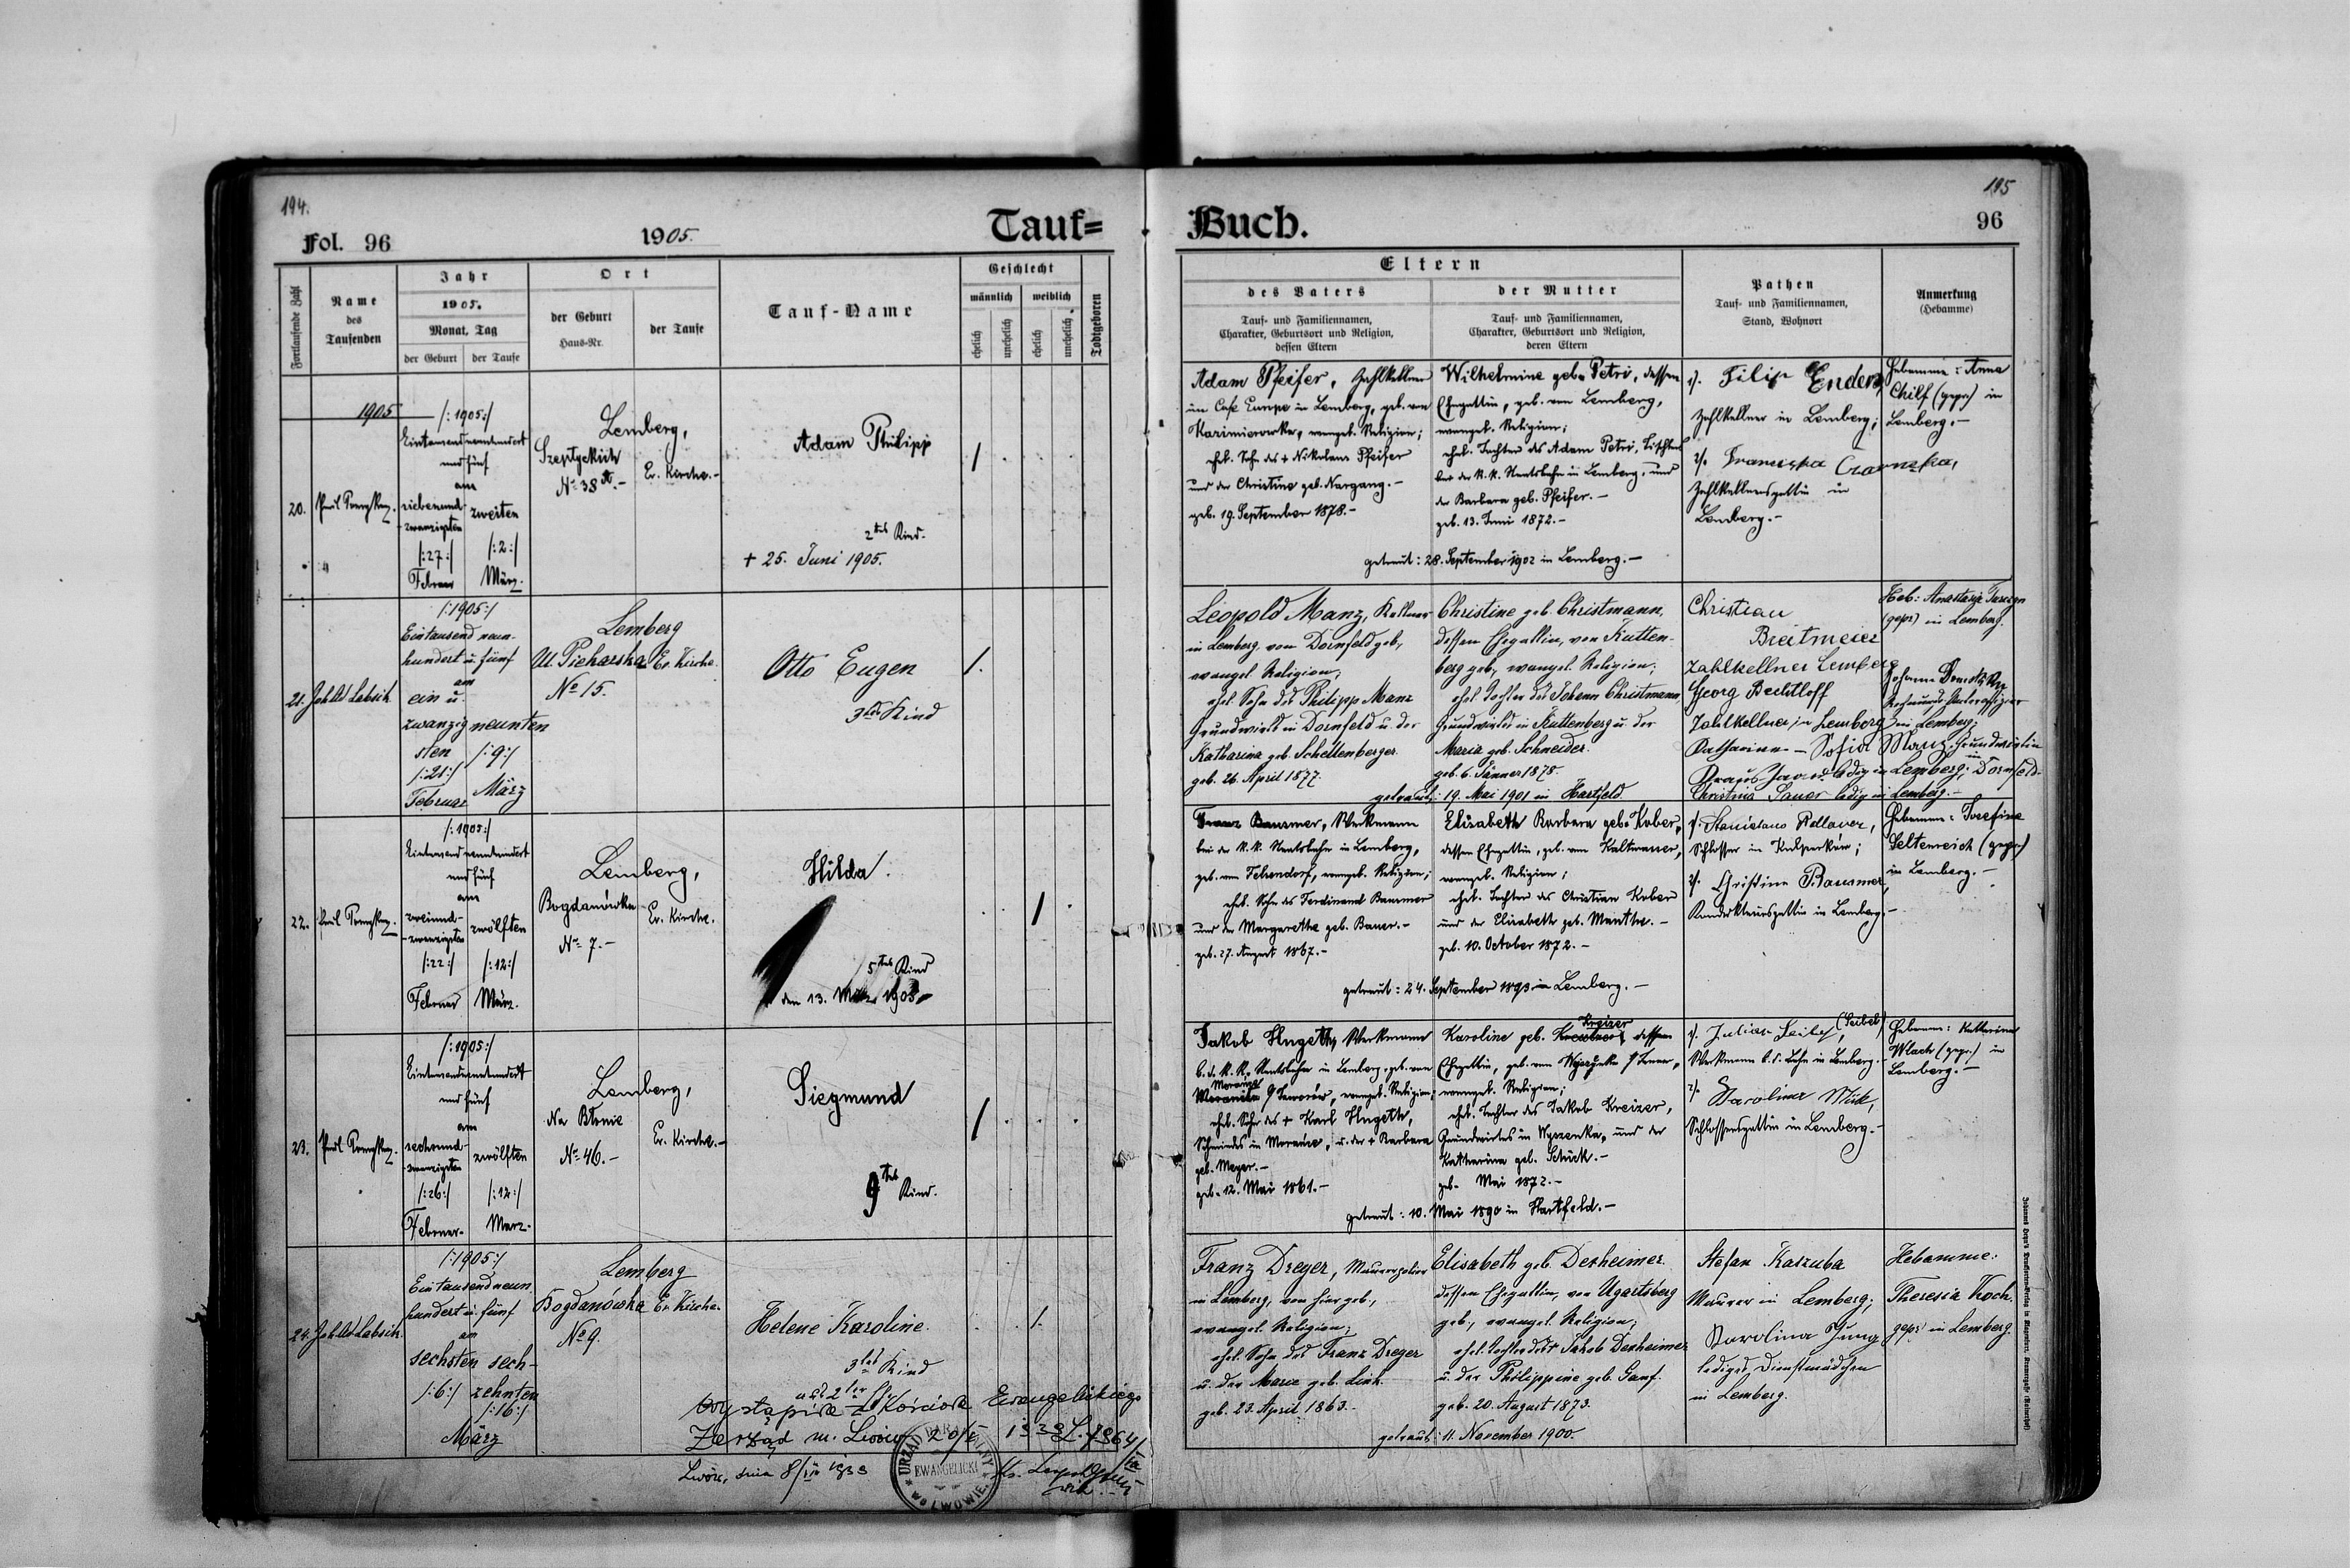 194.
Fol. 96
1905.
Tauf=
Fortlaufende Zahl
Name
des
Taufenden
Jahr
1905.
Monat, Tag
der Geburt
der Taufe
Ort
der Geburt
Haus-Nr.
der Taufe
Tauf-Name
Geschlecht
männlich
weiblich
ehelich
unehelich
ehelich
unehelich
Todtgeboren
1905
20.
/:1905:/
Eintausendneunhundert
und fünf
am
siebenund-
zwanzigsten
/:27:/
Februar
zweiten
/:2:/
März.
Lemberg,
Szeptyckich
No 38 A.-
Ev. Kirche.-
Adam Philipp
2tes Kind.
+ 25. Juni 1905.
/
21. Joh. Labsik
/:1905:/
Eintausend neun-
hundert u. fünf
am
ein u.
zwanzig
sten
/:21:/
Februar
neunten
/:9:/
März
Lemberg
Ul. Piekarska
No 15.
Ev. Kirche.
Otto Eugen
3tes Kind
/.
22.
/:1905:/
Eintausendneunhundert
und fünf
am
zweiund-
zwanzigsten
/:22:/
Februar
zwölften
/:12:/
März.
Lemberg,
Bogdanówka
No 7.-
Ev. Kirche.
Hilda.
5tes Kind
den 13. März 1905.
/
23.
/:1905:/
Eintausendneunhundert
und fünf
am
sechsund-
zwanzigsten
/:26:/
Februar.
zwölften
/:12:/
März.
Lemberg,
Na Błonie
No 46.-
Ev. Kirche.-
Siegmund
9tes Kind.
/
24. Joh. Labsik.
/:1905:/
Eintausendneun
hundert u. fünf
am
sechsten
/:6:/
sech-
zehnten
/:16:/
März
Lemberg
Bogdanówka
No 9.
Ev. Kirche.
Helene Karoline.
3tes Kind
/.
wystąpiła z Kościoła Ewangelickiego
Zarząd m. Lwów
Lwów, dnia 8/
URZĄD PARAFIALNY
EWANGELICKI
we LWOWIE
195
Buch.
96
Eltern
des Vaters
Tauf- und Familiennamen,
Charakter, Geburtsort und Religion,
dessen Eltern
der Mutter
Tauf- und Familiennamen,
Charakter, Geburtsort und Religion,
deren Eltern
Pathen
Tauf- und Familiennamen,
Stand, Wohnort
Anmerkung
(Hebamme)
Adam Pfeifer, Zahlkellner
im Café Europe in Lemberg, geb. von
Kazimierowka, evangel. Religion;
ehel. Sohn des + Nikolaus Pfeifer
und der Christine geb. Nargang.-
geb. 19. September 1878.-
Wilhelmine geb. Petri, dessen
Ehegattin, geb. von Lemberg,
evangel. Religion;
ehel. Tochter des Adam Petri,
bei der K.K. Staatsbahn in Lemberg, und
der Barbara geb. Pfeifer.-
geb. 13. Juni 1872.-
getraut: 28. September 1902 in Lemberg.-
1). Filip Enders,
Zahlkellner in Lemberg;
2). Franciszka Czarnecka,
Zahlkellnersgattin in
Lemberg.-
Hebamme: Anna
Chilf (gepr.) in
Lemberg.-
Leopold Manz, Kellner
in Lemberg, von Dornfeld geb.,
evangel. Religion;
ehel. Sohn des Philipp Manz
Grundwirth in Dornfeld u. der
Katharina geb. Schellenberger.
geb. 26. April 1877.
Christine geb. Christmann,
dessen Ehegattin, von Kutten-
berg geb., evangel. Religion;
ehel. Tochter des Johann Christmann,
Grundwirth in Kuttenberg u. der
Maria geb. Schneider.
geb. 6. Jänner 1878.
getraut: 19. Mai 1901 in Hartfeld
Christian
Breitmeier
Zahlkellner Lemberg
Georg Bechtloff
Zahlkellner in Lemberg
Katharina
Sofia Manz, Grundwirtin
in Dornfeld
ledig in Lemberg;
Christina Sauer ledig in Lemberg.-
Heb: Anastasja
(gepr.) in Lemberg.
Johann
in Lemberg;
Franz Bausmer, Werkmann
bei der K.K. Staatsbahn in Lemberg,
geb. von Felsendorf, evangel. Religion;
ehel. Sohn des Ferdinand Bausmer
und der Margarethe geb. Bauer.-
geb. 27. August 1867.-
Elisabeth Barbara geb. Kober,
dessen Ehegattin, geb. von Kaltwasser,
evangel. Religion;
ehel. Tochter des Christian Kober
und der Elisabeth geb. Manthe.-
geb. 10. October 1872.-
getraut: 24. September 1893 in Lemberg.-
1). Stanislaus
Schlosser in Kulparków;
2). Christine Bausmer,
Kondukteursgattin in Lemberg.-
Hebamme: Josefine
Seltenreich (gepr.)
in Lemberg.-
Jakob Hugeth, Werkmann
b. d. K.K. Staatsbahn in Lemberg, geb. von
Moraniec, evangel. Religion;
ehel. Sohn des + Karl Hugeth,
Schmieds in Moraniec, u. der + Barbara
geb. Meyer.-
geb. 12. Mai 1861.-
Karoline geb. Kreizer, dessen
Ehegattin, geb. von
evangel. Religion;
ehel. Tochter des Jakob Kreizer,
Grundwirtes in Wyszenka, und der
Katharina geb. Schick.-
geb. Mai 1872.-
getraut: 10. Mai 1890 in Hartfeld.-
1). Julian Seibel, (Seibel)
Werkmann b. d. Bahn in Lemberg.-
2). Karolina
Schlossersgattin in Lemberg.-
Hebamme: Katharina
Wlach (gepr.) in
Lemberg.-
Franz Dreger, Maurerpolier
in Lemberg, von hier geb.,
evangel. Religion;
ehel. Sohn des Franz Dreger
u. der Marie geb. Link.
geb. 23. April 1863.-
Elisabeth geb. Derheimer
dessen Ehegattin, von Ugartsberg
geb., evangel. Religion;
ehel. Tochter des + Jakob Derheimer
u. der Philippine geb. Ganf.
geb. 20. August 1873.
getraut: 11. November 1900.
Stefan Kaszuba
Maurer in Lemberg;
Karolina Jung
lediges Dienstmädchen
in Lemberg.
Hebamme:
Theresia Koch.
gepr. in Lemberg.